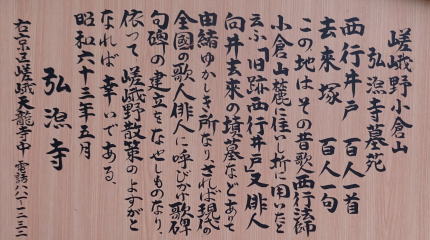 嵯峨野小倉山
弘源寺墓苑
西行井戸 百人一首
去来塚 百人一句
この地はその昔歌人西行法師
小倉山麓に住し折に用いたと
云ふ「旧跡西行井戸」又俳人
向井去来の墳墓などありて
由緒ゆかしき所なり、されば現代の
全国の歌人俳人に呼びかけ歌碑
句碑の建立をなせしものなり、
依って嵯峨野散策のよすがと
なれば幸いである、
昭和六十三年五月
弘源寺
右京区嵯峨天龍寺中 電話八八一ー一二三二